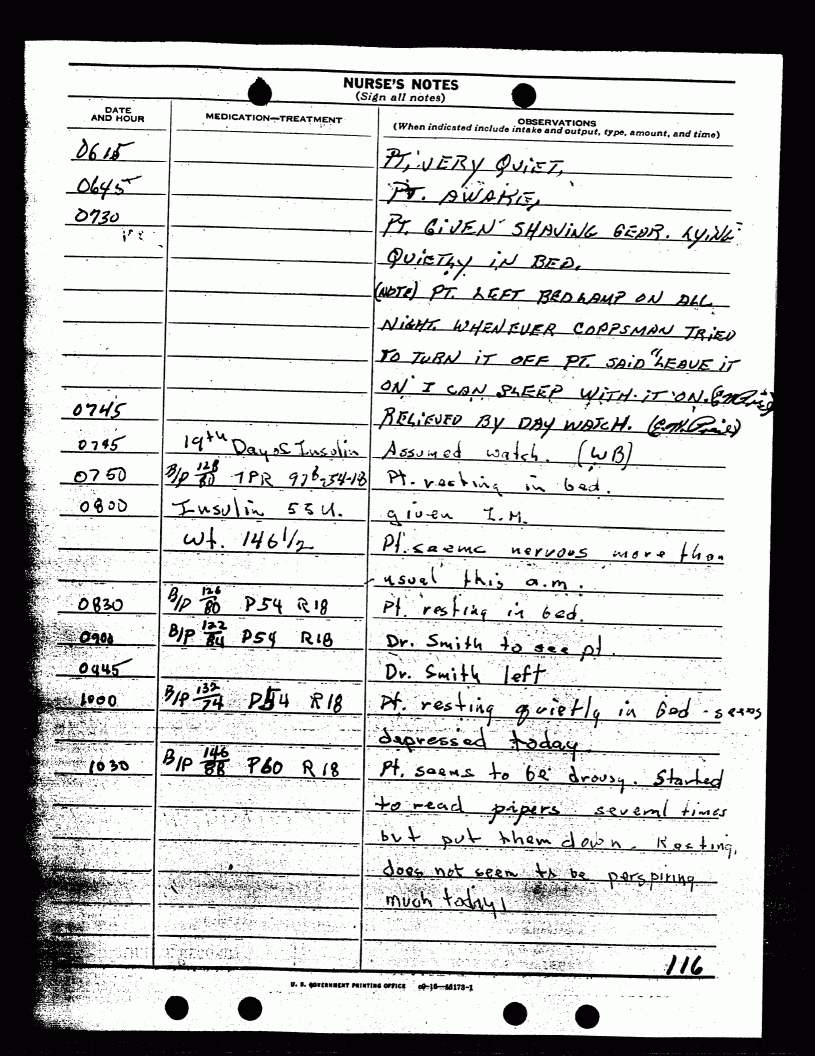 NURSE'S NOTES
(Sign all notes)
DATE AND HOUR
MEDICATION—TREATMENT
OBSERVATIONS
(When indicated include intake and output, type, amount, and time)
0615 PT. VERY QUIET.
0645 PT. AWAKE.
0730 PT. GIVEN SHAVING GEAR. LYING
QUIETLY IN BED.
(NOTE) PT. LEFT BEDLAMP ON ALL
NIGHT. WHENEVER CORPSMAN TRIED
TO TURN IT OFF PT. SAID "LEAVE IT
ON I CAN SLEEP WITH IT ON.
0745 RELIEVED BY DAY WATCH.
0745 19th Day of Insulin Assumed watch. (WB)
0750 B/P 128/80 TPR 97⁶-54-18 Pt. resting in bed.
0800 Insulin 55 U. given I.M.
Wt. 146 1/2 Pt. seems nervous more than
usual this a.m.
0830 B/P 126/80 P54 R18 Pt. resting in bed.
0900 B/P 122/84 P54 R18 Dr. Smith to see pt.
0945 Dr. Smith left
1000 B/P 132/74 P54 R18 Pt. resting quietly in bed - seems
depressed today.
1030 B/P 146/88 P60 R18 Pt. seems to be drousy. Started
to read papers several times
but put them down. Resting,
does not seem to be perspiring
much today.
116
U. S. GOVERNMENT PRINTING OFFICE